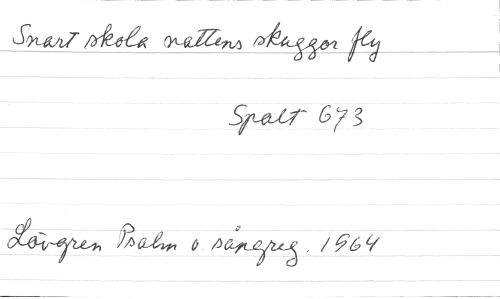 Snart skola nattens skuggor fly
Spalt 673
Lövgren Psalm o. sångreg. 1964